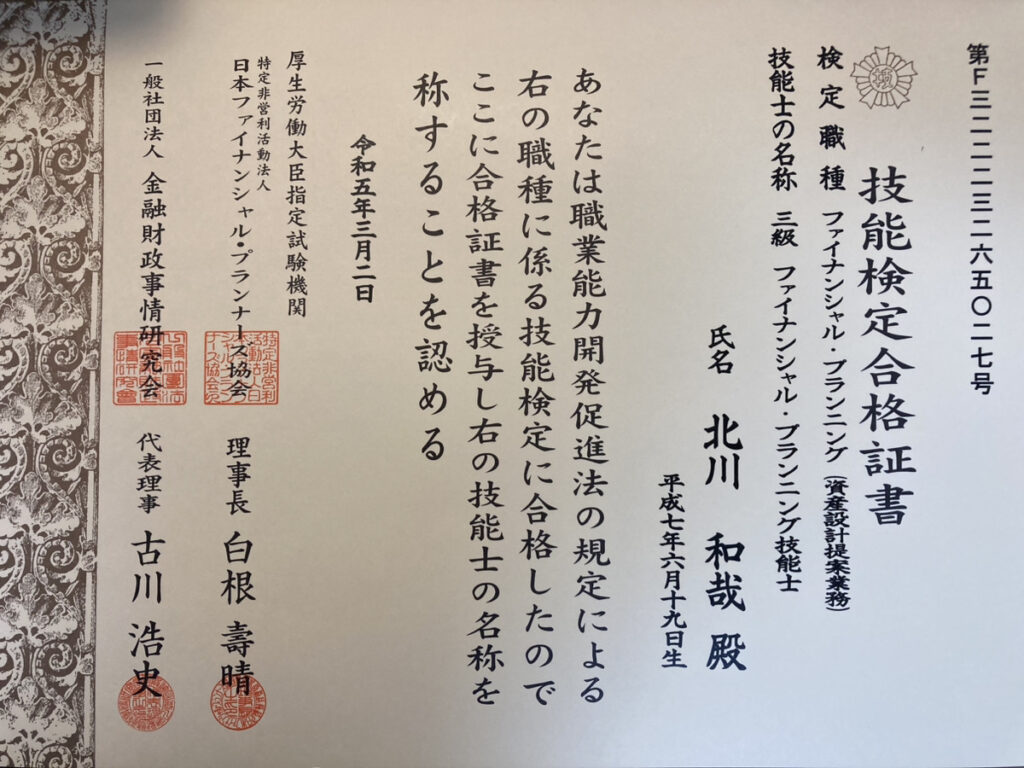 第F三二二二三二六五〇二七号
技能検定合格証書
検定職種 ファイナンシャル・プランニング(資産設計提案業務)
技能士の名称 三級 ファイナンシャル・プランニング技能士
氏名 北川 和哉 殿
平成七年六月十九日生
あなたは職業能力開発促進法の規定による
右の職種に係る技能検定に合格したので
ここに合格証書を授与し右の技能士の名称を
称することを認める
令和五年三月二日
厚生労働大臣指定試験機関
特定非営利活動法人
日本ファイナンシャル・プランナーズ協会 理事長 白根 壽晴
一般社団法人 金融財政事情研究会 代表理事 古川 浩史